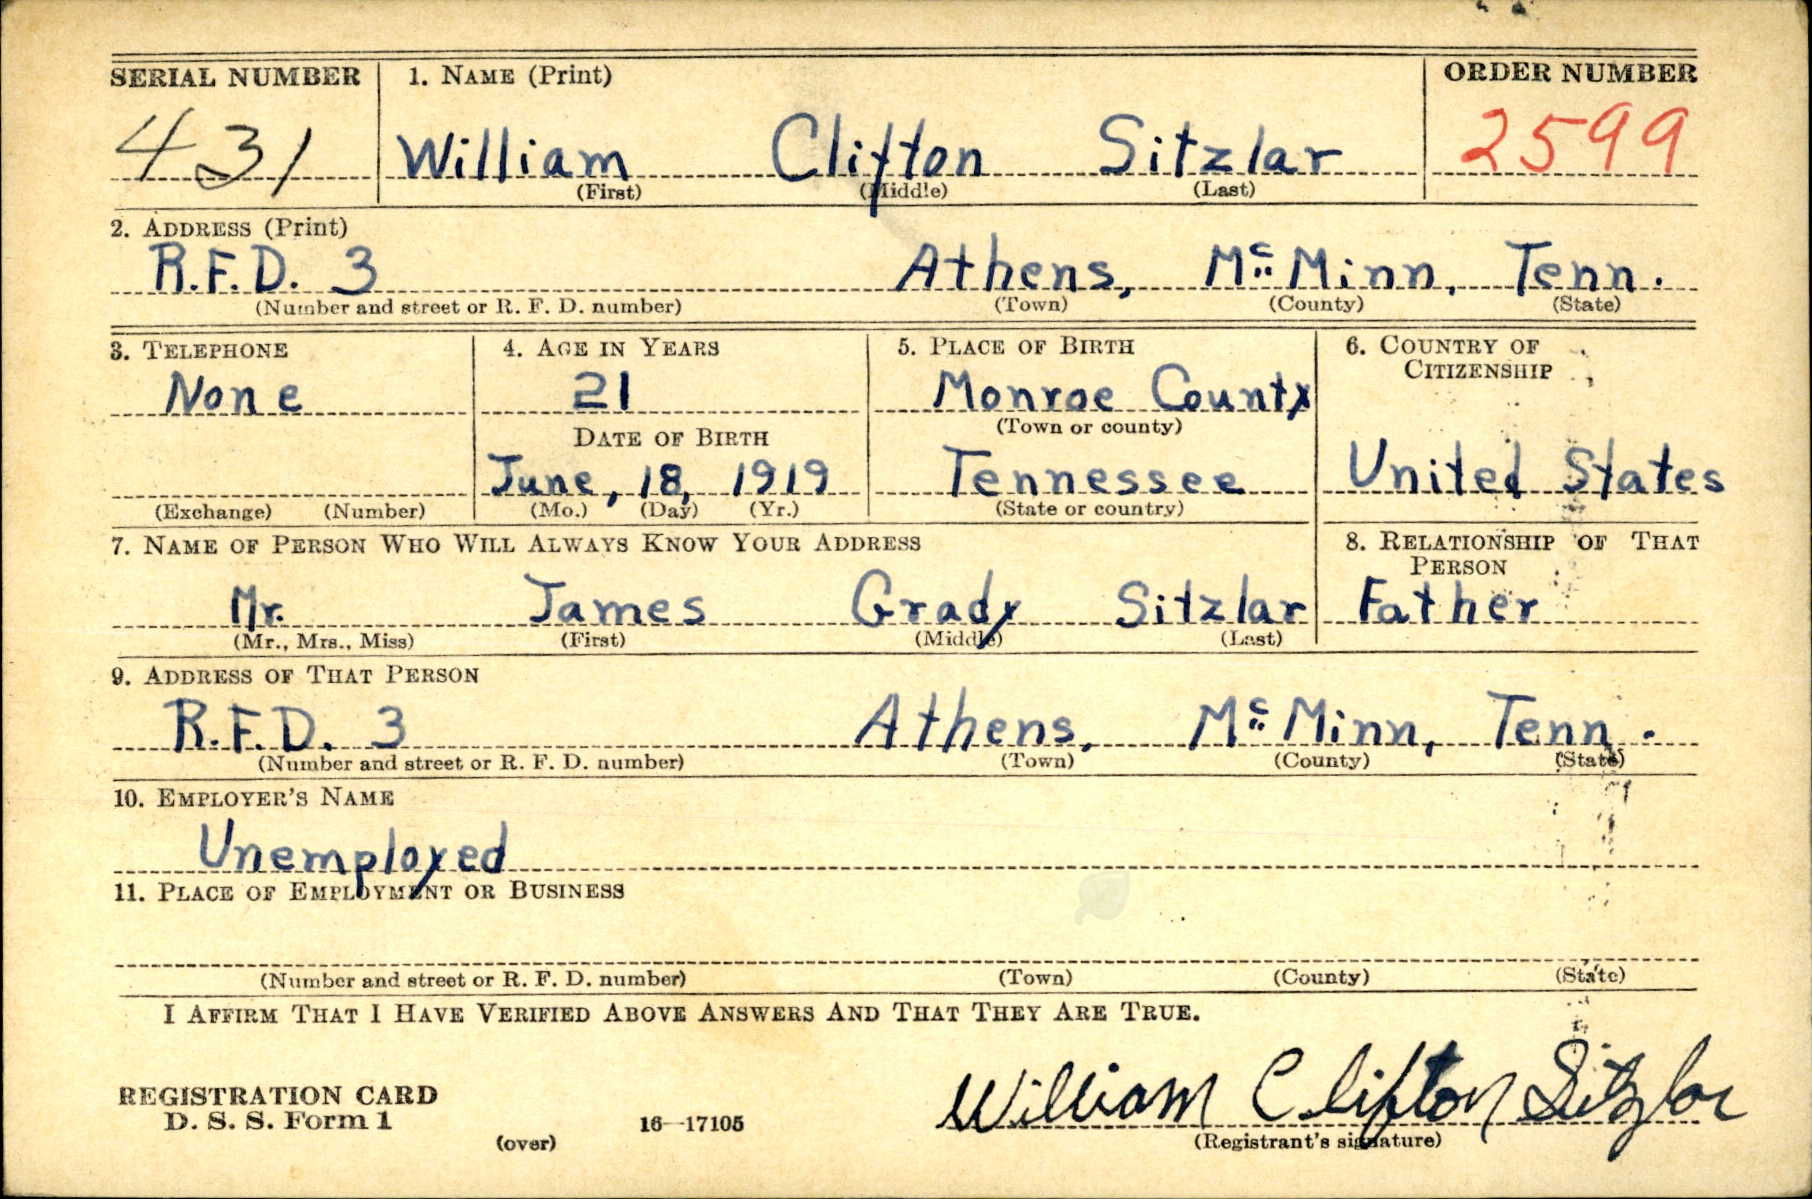 SERIAL NUMBER 1. NAME (Print) ORDER NUMBER
431 William Clifton Sitzlar 2599
(First) (Middle) (Last)
2. ADDRESS (Print)
R.F.D. 3 Athens, Mc Minn, Tenn.
(Number and street or R. F. D. number) (Town) (County) (State)
3. TELEPHONE 4. AGE IN YEARS 5. PLACE OF BIRTH 6. COUNTRY OF
CITIZENSHIP
None 21 Monroe County
DATE OF BIRTH (Town or county)
June, 18, 1919 Tennessee United States
(Exchange) (Number) (Mo.) (Day) (Yr.) (State or country)
7. NAME OF PERSON WHO WILL ALWAYS KNOW YOUR ADDRESS 8. RELATIONSHIP OF THAT
PERSON
Mr. James Grady Sitzlar Father
(Mr., Mrs., Miss) (First) (Middle) (Last)
9. ADDRESS OF THAT PERSON
R.F.D. 3 Athens, Mc Minn, Tenn.
(Number and street or R. F. D. number) (Town) (County) (State)
10. EMPLOYER'S NAME
Unemployed
11. PLACE OF EMPLOYMENT OR BUSINESS
(Number and street or R. F. D. number) (Town) (County) (State)
I AFFIRM THAT I HAVE VERIFIED ABOVE ANSWERS AND THAT THEY ARE TRUE.
REGISTRATION CARD
D. S. S. Form 1 William Clifton Sitzlar
(over) 16—17105 (Registrant's signature)